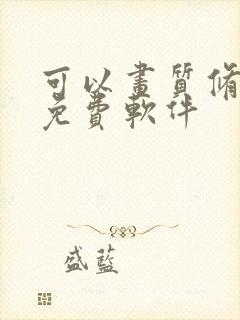 可以畫質修
免費軟件
盛藍